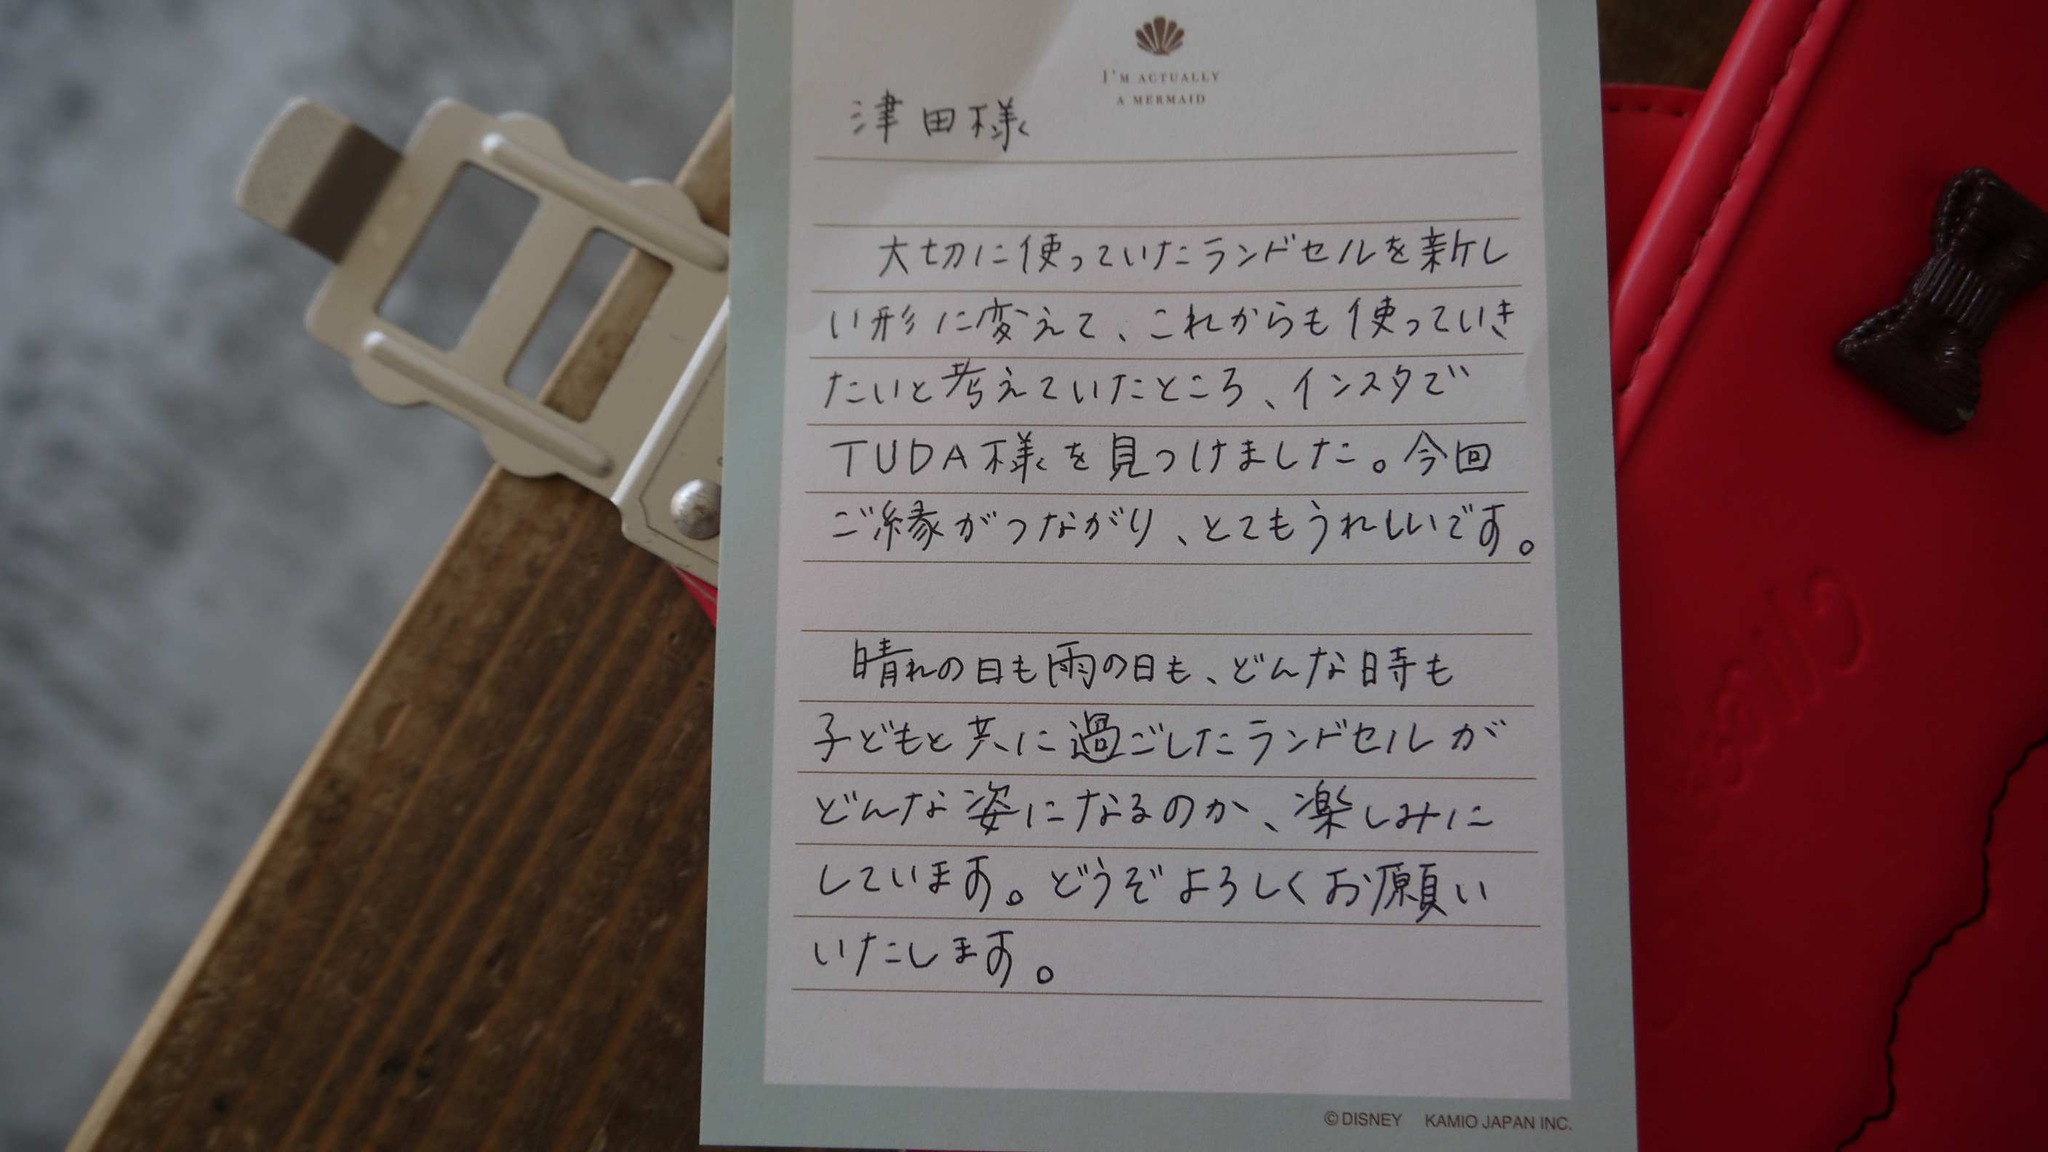 I'M ACTUALLY
A MERMAID
津田様
大切に使っていたランドセルを新し
い形に変えて、これからも使っていき
たいと考えていたところ、インスタで
TUDA様を見つけました。今回
ご縁がつながり、とてもうれしいです。
晴れの日も雨の日も、どんな時も
子どもと共に過ごしたランドセルが
どんな姿になるのか、楽しみに
しています。どうぞよろしくお願い
いたします。
©DISNEY KAMIO JAPAN INC.